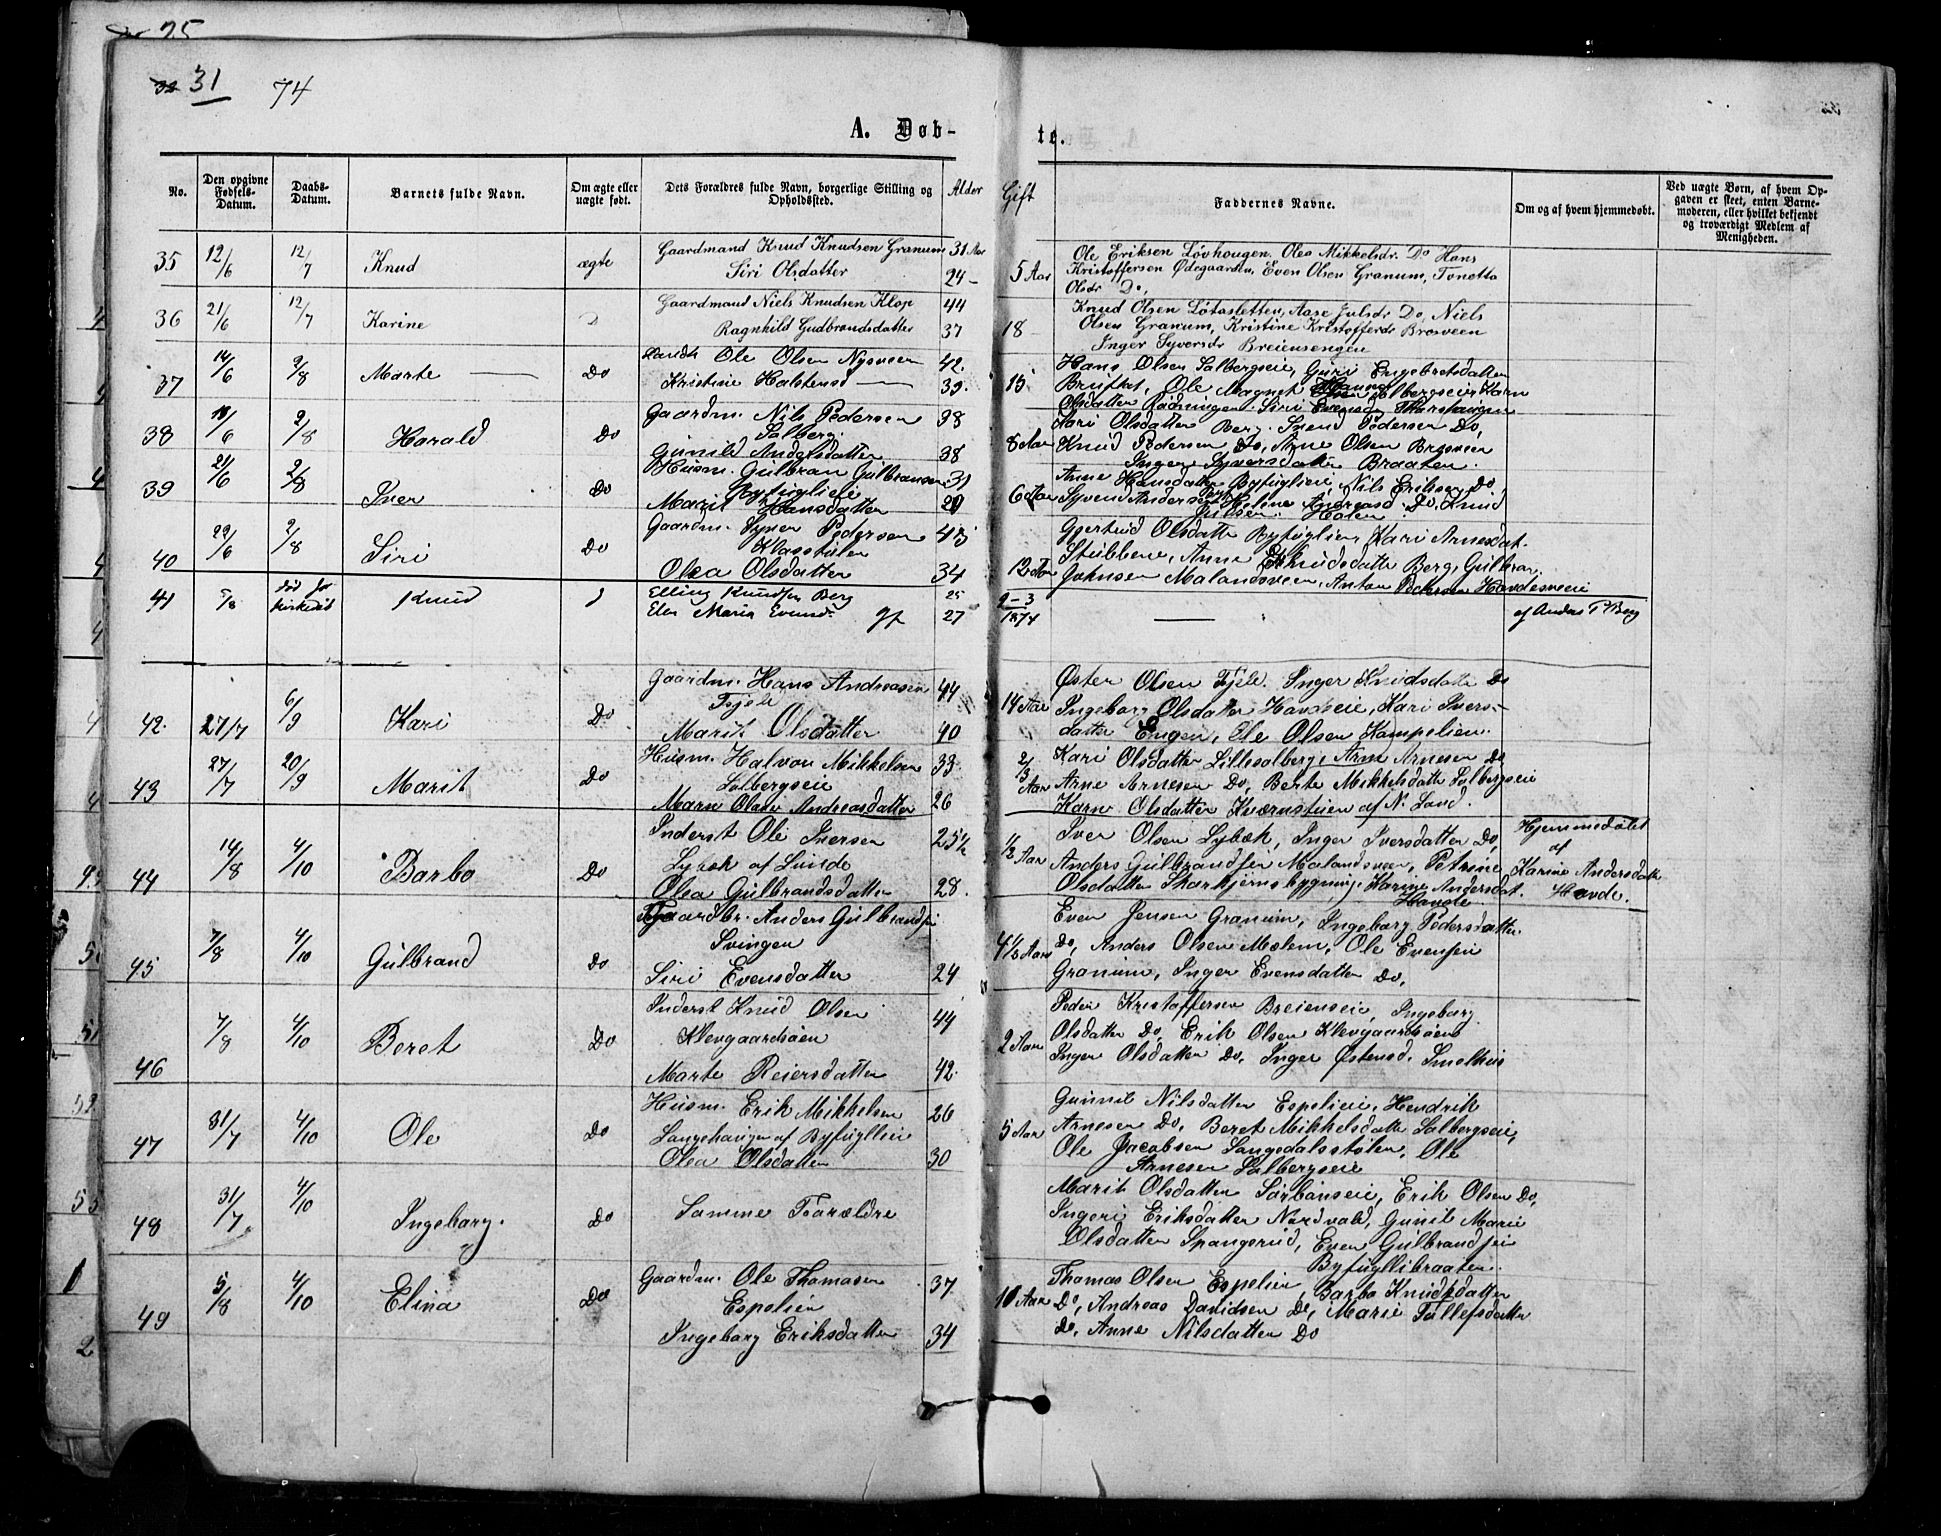 31 74
A. Døb-
te.
No.
Den opgivne Fødsels-Datum.
Daabs-Datum.
Barnets fulde Navn.
Om ægte eller uægte født.
Dets Forældres fulde Navn, borgerlige Stilling og Opholdssted.
Alder
Gift
Faddernes Navne.
Om og af hvem hjemmedøbt.
Ved uægte Børn, af hvem Opgaven er skeet, enten Barnemoderen, eller hvilket bekjendt og troværdigt Medlem af Menigheden.
35 12/6 12/7 Knud ægte Gaardmand Knud Knudsen Granum 31 Aar
Siri Olsdatter 24 -
5 Aar Ole Eriksen Løvhougen, Olea Mikkelsdr. Do Hans
Kristoffersen Ødegaarden, Even Olsen Granum, Tonetta
Olsdr Do,
36 21/6 12/7 Karine D Gaardmand Niels Knudsen Klop 44
Ragnhild Gudbrandsdatter 37
18 Knud Olsen Løtasletten, Aase Julsdr Do, Niels
Olsen Granum, Kristine Kristoffersdr Brosveen
Inger Syversdr Breiensengen
37 14/6 2/8 Marte Do Ole Olsen Nysveen 42.
Kristine Halstensd 39.
15 Hans Olsen Salbergseie, Guri Engebretsdatter
Ole Magnus Salbergseie, Karn
Olsdatter Rødningen. Siri
38 2/8 Harald Do Gaardm. Nils Pedersen 38
Salberg.
Gunild Andersdatter 38
8 Aar Kari Olsdatter Berg. Svend Pedersen Do,
Knud Pedersen Do, Arne Olsen Brosveen
Inger Syversdatter Braaten.
39 21/6 2/8 Iver Do Husm. Gulbran Gulbransen 31
Byfuglien
Marit Hansdatter
6 Aar Anne Hansdatter Byfuglien, Nils Eriksen Do,
Syvend Andersen Helene Andreasd. Do, Knud
Julsen Holen
40 29/6 2/8 Siri Do Gaardm. Syver Pedersen 43
Klasstølen
Olea Olsdatter 34
12 Aar Gjertrud Olsdatter Byfuglien, Kari Arnesdat.
Stubbene, Anne Knudsdatter Berg, Gulbran
Johnsen Malandsveen, Anton Pedersen Havdesveie
41 5/8 død før kirkedåb Knud Elling Knudsen Berg 25
Else Maria Evensd. 27
2-3
1874
af Anders P Berg
42. 27/7 6/9 Kari Do Gaardm. Hans Andreasen 44
Fjele
Marit Olsdatter 40
14 Aar Øster Olsen Fjele. Inger Knudsdatter Do
Ingeborg Olsdatter Havdeeie, Kari Ivers-
datter Engen, Ole Olsen Kampelien.
43 27/7 20/9 Marit Do Husm. Halvor Mikkelsen 33
Salbergseie
Marn Andreasdatter 26
2/3 Aar Kari Olsdatter Lillesalberg, Arne Arnesen Do
Arne Arnesen Do, Berte Mikkelsdatter Salbergseie
Karn Olsdatter Kværnstuen af N. Land.
44 14/8 4/10 Barbo Do Inderst Ole Iversen 25½
Lybæk af Svinde
Olea Gulbrandsdatter 28.
½ Aar Iver Olsen Lybæk, Inger Iversdatter Do,
Anders Gulbrandsen Malandsveen, Petrine
Olsdatter Karine Andersdat.
Havde
Hjemmedøbt
af
Karine Andersdatter
Havde.
45 7/8 4/10 Gulbrand Do Gaardbr. Anders Gulbrandsen
Svingen
Siri Evensdatter 24
4½ Aar Even Jensen Granum, Ingeborg Pedersdatter
Do, Anders Olsen Mælem, Ole Evensen
Granum, Inger Evensdatter Do,
46 7/8 4/10 Beret Do Inderst Knud Olsen 44
Klevgaardsøen
Marte Reiersdatter 42.
2 Aar Peder Kristoffersen Breienseie, Ingeborg
Olsdatter Do, Erik Olsen Klevgaardsøen
Inger Olsdatter Do, Inger Østensd. Smelhus
47 31/7 4/10 Ole Do Husm. Erik Mikkelsen 26
Langehaugen af Byfugllien
Olea Olsdatter 30
5 Aar Gunnil Nilsdatter Espelieie, Hendrik
Arnesen Do, Beret Mikkelsdatter Salbergseie,
Ole Jacobsen Langedalsstølen, Ole
Arnesen Salbergseie
48 31/7 4/10 Ingeborg. Do Samme Forældre
Marit Olsdatter Sørbønseie, Erik Olsen Do,
Ingeri Eriksdatter Nordvold, Gunil Marie
Olsdatter Spangerud, Even Gulbrandsen
Byfugllibraaten.
49 5/8 4/10 Elina Do Gaardm. Ole Thomasen 37
Espelien
Ingeborg Eriksdatter 34
10 Aar Thomas Olsen Espelien, Barbo Knudsdatter
Do, Andreas Davidsen Do, Marie Tollefsdatter
Do, Anne Nilsdatter Do